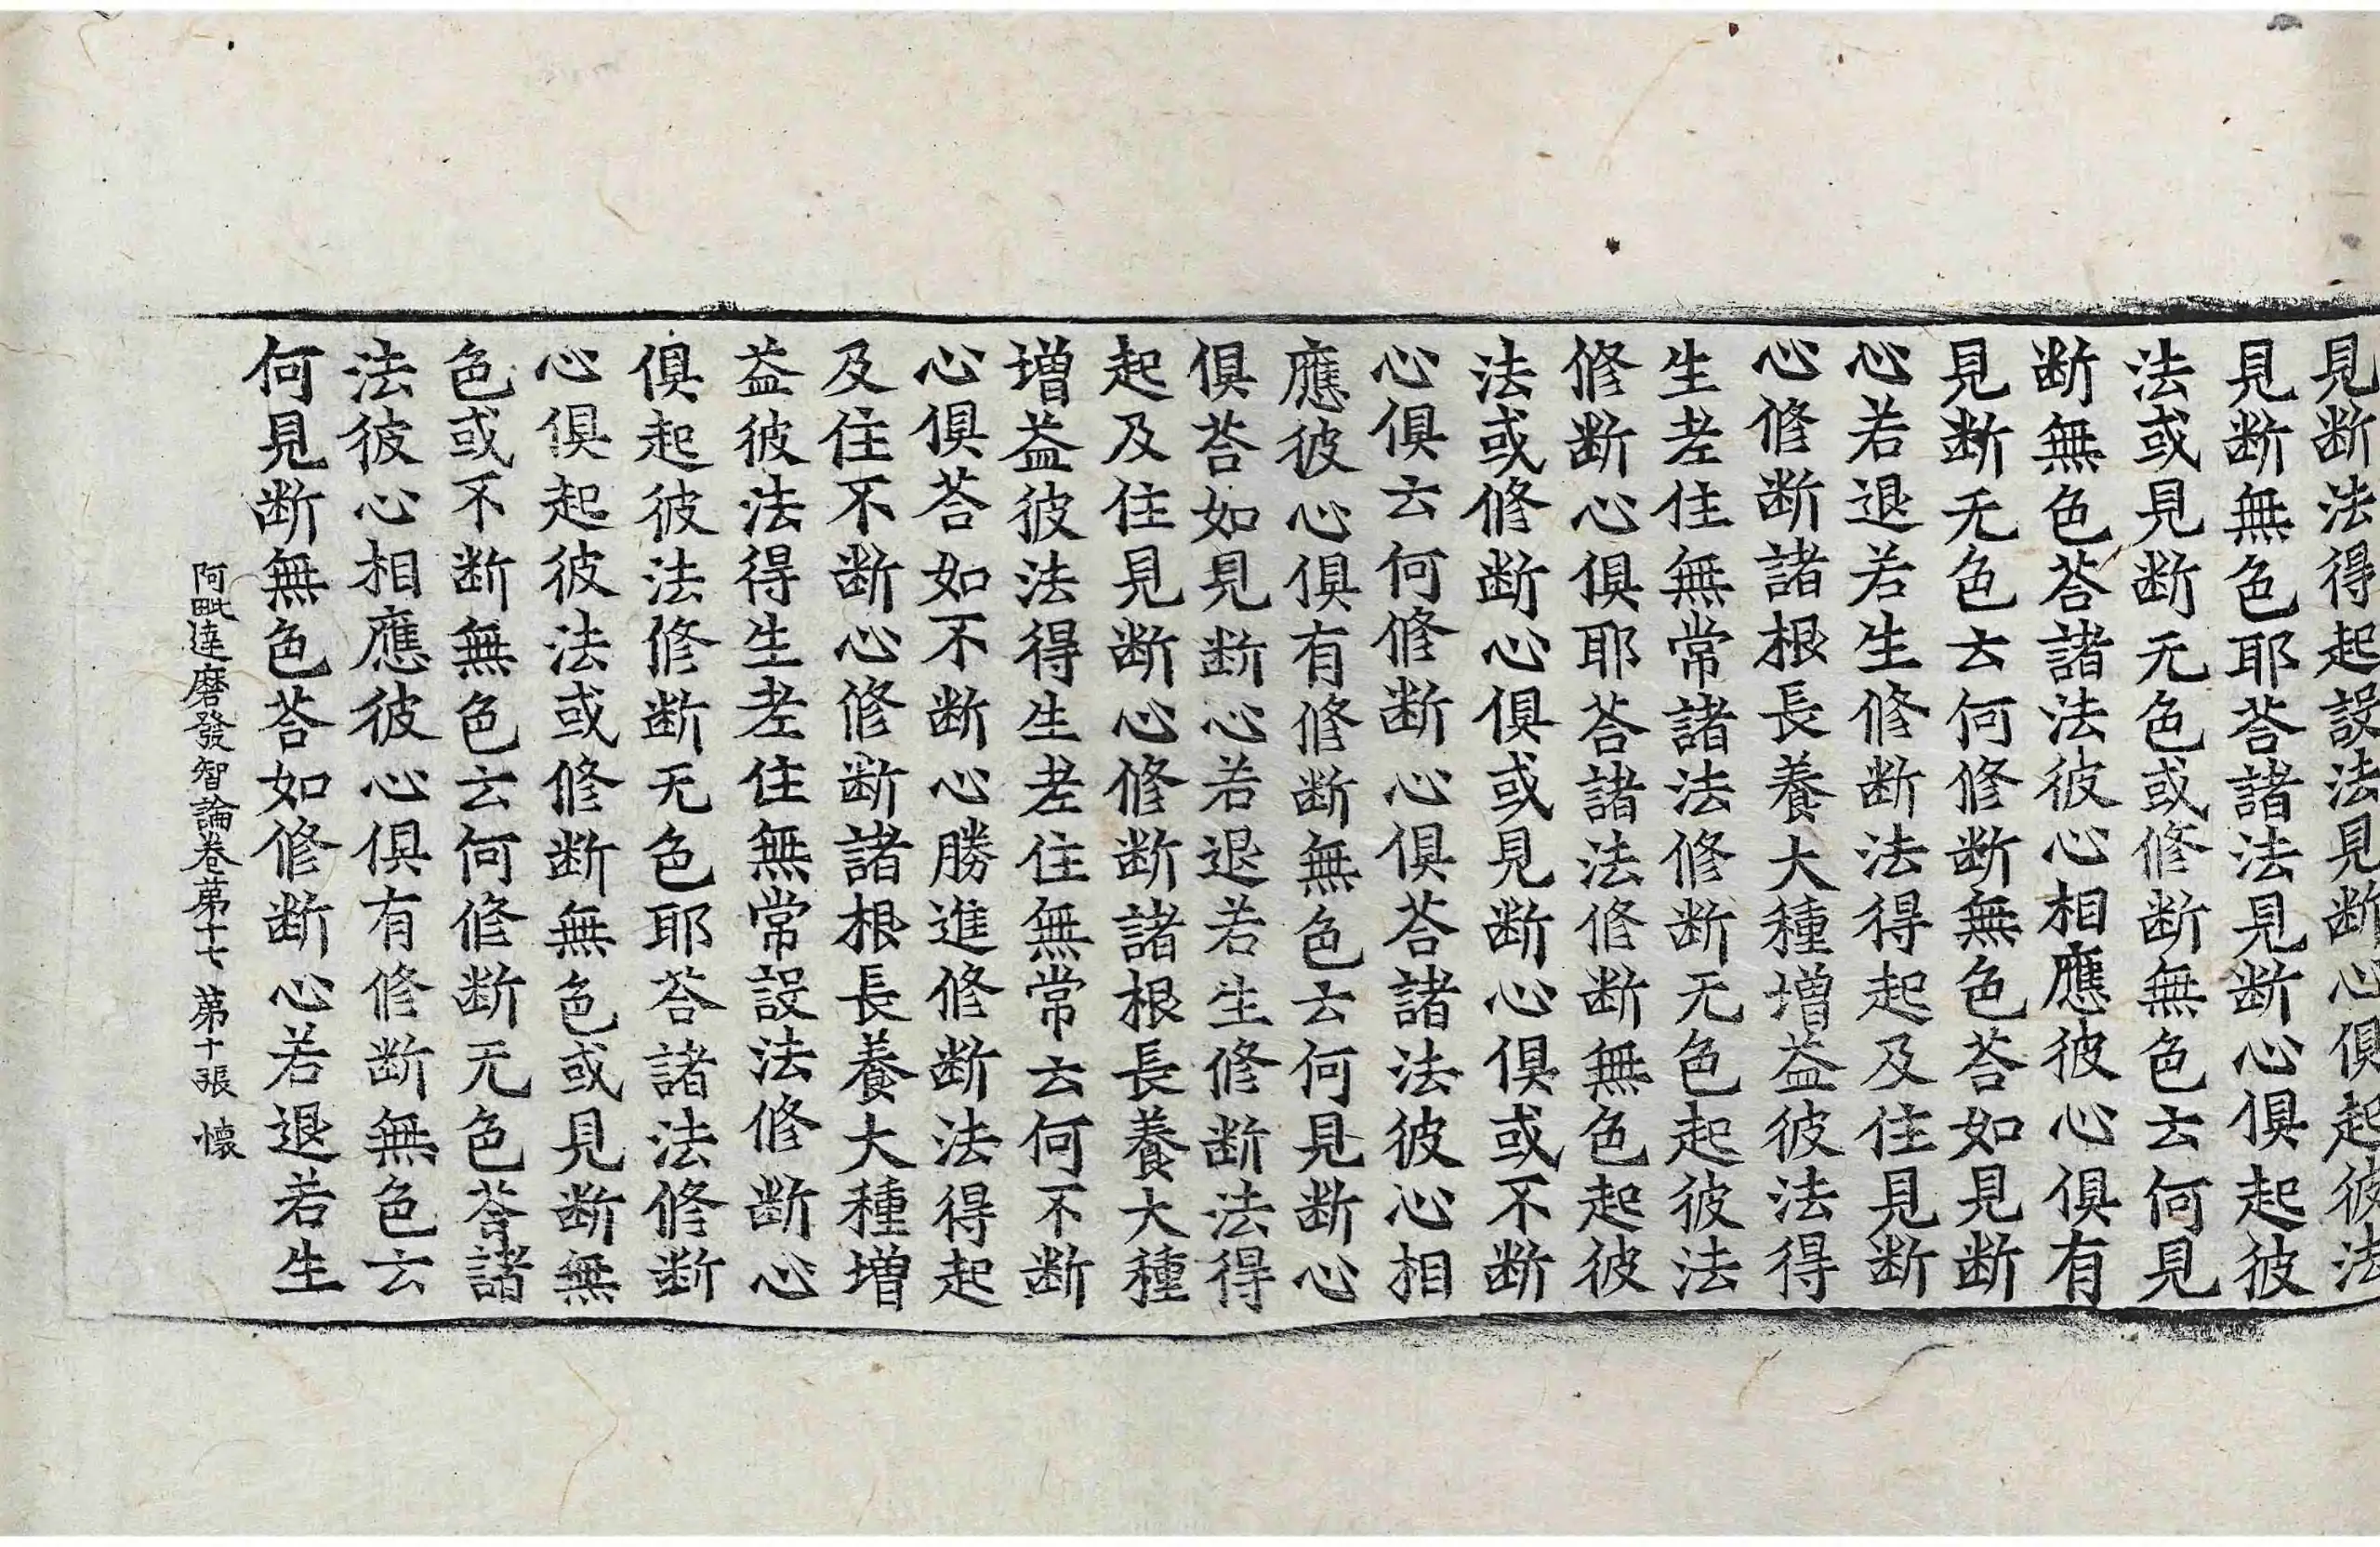 見断法得起設法見断心俱起彼法
見断無色耶荅諸法見断心俱起彼
法或見断无色或修断無色云何見
断無色荅諸法彼心相應彼心俱有
見断无色云何修断無色荅如見断
心若退若生修断法得起及住見断
心修断諸根長養大種増益彼法得
生老住無常諸法修断无色起彼法
修断心俱耶荅諸法修断無色起彼
法或修断心俱或見断心俱或不断
心俱云何修断心俱荅諸法彼心相
應彼心俱有修断無色云何見断心
俱荅如見断心若退若生修断法得
起及住見断心修断諸根長養大種
増益彼法得生老住無常云何不断
心俱荅如不断心勝進修断法得起
及住不断心修断諸根長養大種増
益彼法得生老住無常設法修断心
俱起彼法修断无色耶荅諸法修斷
心俱起彼法或修断無色或見断無
色或不断無色云何修断无色荅諸
法彼心相應彼心俱有修断無色云
何見断無色荅如修断心若退若生
阿毗達磨發智論卷第十七 第十張 懐